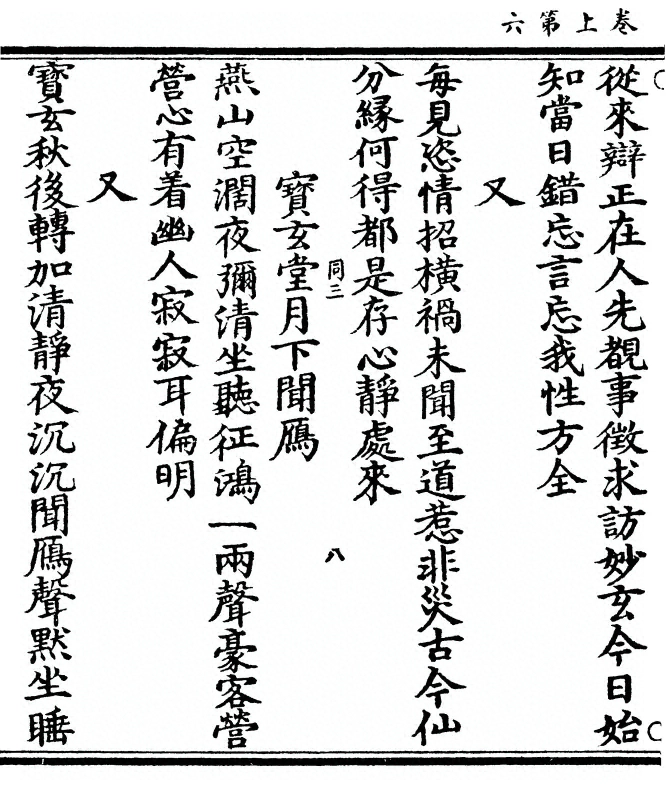 卷上第六
從來辯正在人先覩事徵求訪妙玄今日始
知當日錯忘言忘我性方全
又
每見恣情招橫禍未聞至道惹非災古今仙
分緣何得都是存心靜處來
同三
八
寶玄堂月下聞鴈
燕山空濶夜彌清坐聽征鴻一兩聲豪客營
營心有着幽人寂寂耳偏明
又
寶玄秋後轉加清靜夜沉沉聞鴈聲默坐睡